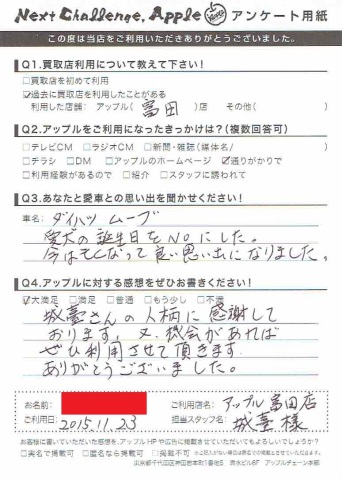 Next Challenge, Apple アンケート用紙
この度は当店をご利用いただきありがとうございました。
Q1.買取店利用について教えて下さい!
□買取店を初めて利用
☑過去に買取店を利用したことがある
利用した店舗: アップル( 富田 )店 その他( )
Q2.アップルをご利用になったきっかけは?(複数回答可)
□テレビCM □ラジオCM □新聞・雑誌(媒体名/ )
□チラシ □DM □アップルのホームページ ☑通りがかりで
□利用経験があるので □紹介 □スタッフに誘われて
Q3.あなたと愛車との思い出を聞かせください!
車名: ダイハツ ムーブ
愛犬の誕生日をNoにした。
今は亡くなって良い思い出になりました。
Q4.アップルに対する感想をぜひお書きください!
☑大満足 □満足 □普通 □もう少し □不満
城臺さんの人柄に感謝して
おります。又、機会があれば
ぜひ利用させて頂きます
ありがとうございました。
お名前:
ご利用店名: アップル富田店
ご利用日: 2015.11.23
担当スタッフ名: 城臺様
お客様に書いていただいた感想を、アップルHPや広告に掲載させていただいてもよろしいでしょうか?
□実名で掲載可 □匿名なら掲載可 □掲載不可
東京都千代田区神田岩本町1番地5 清水ビル6F アップルチェーン本部